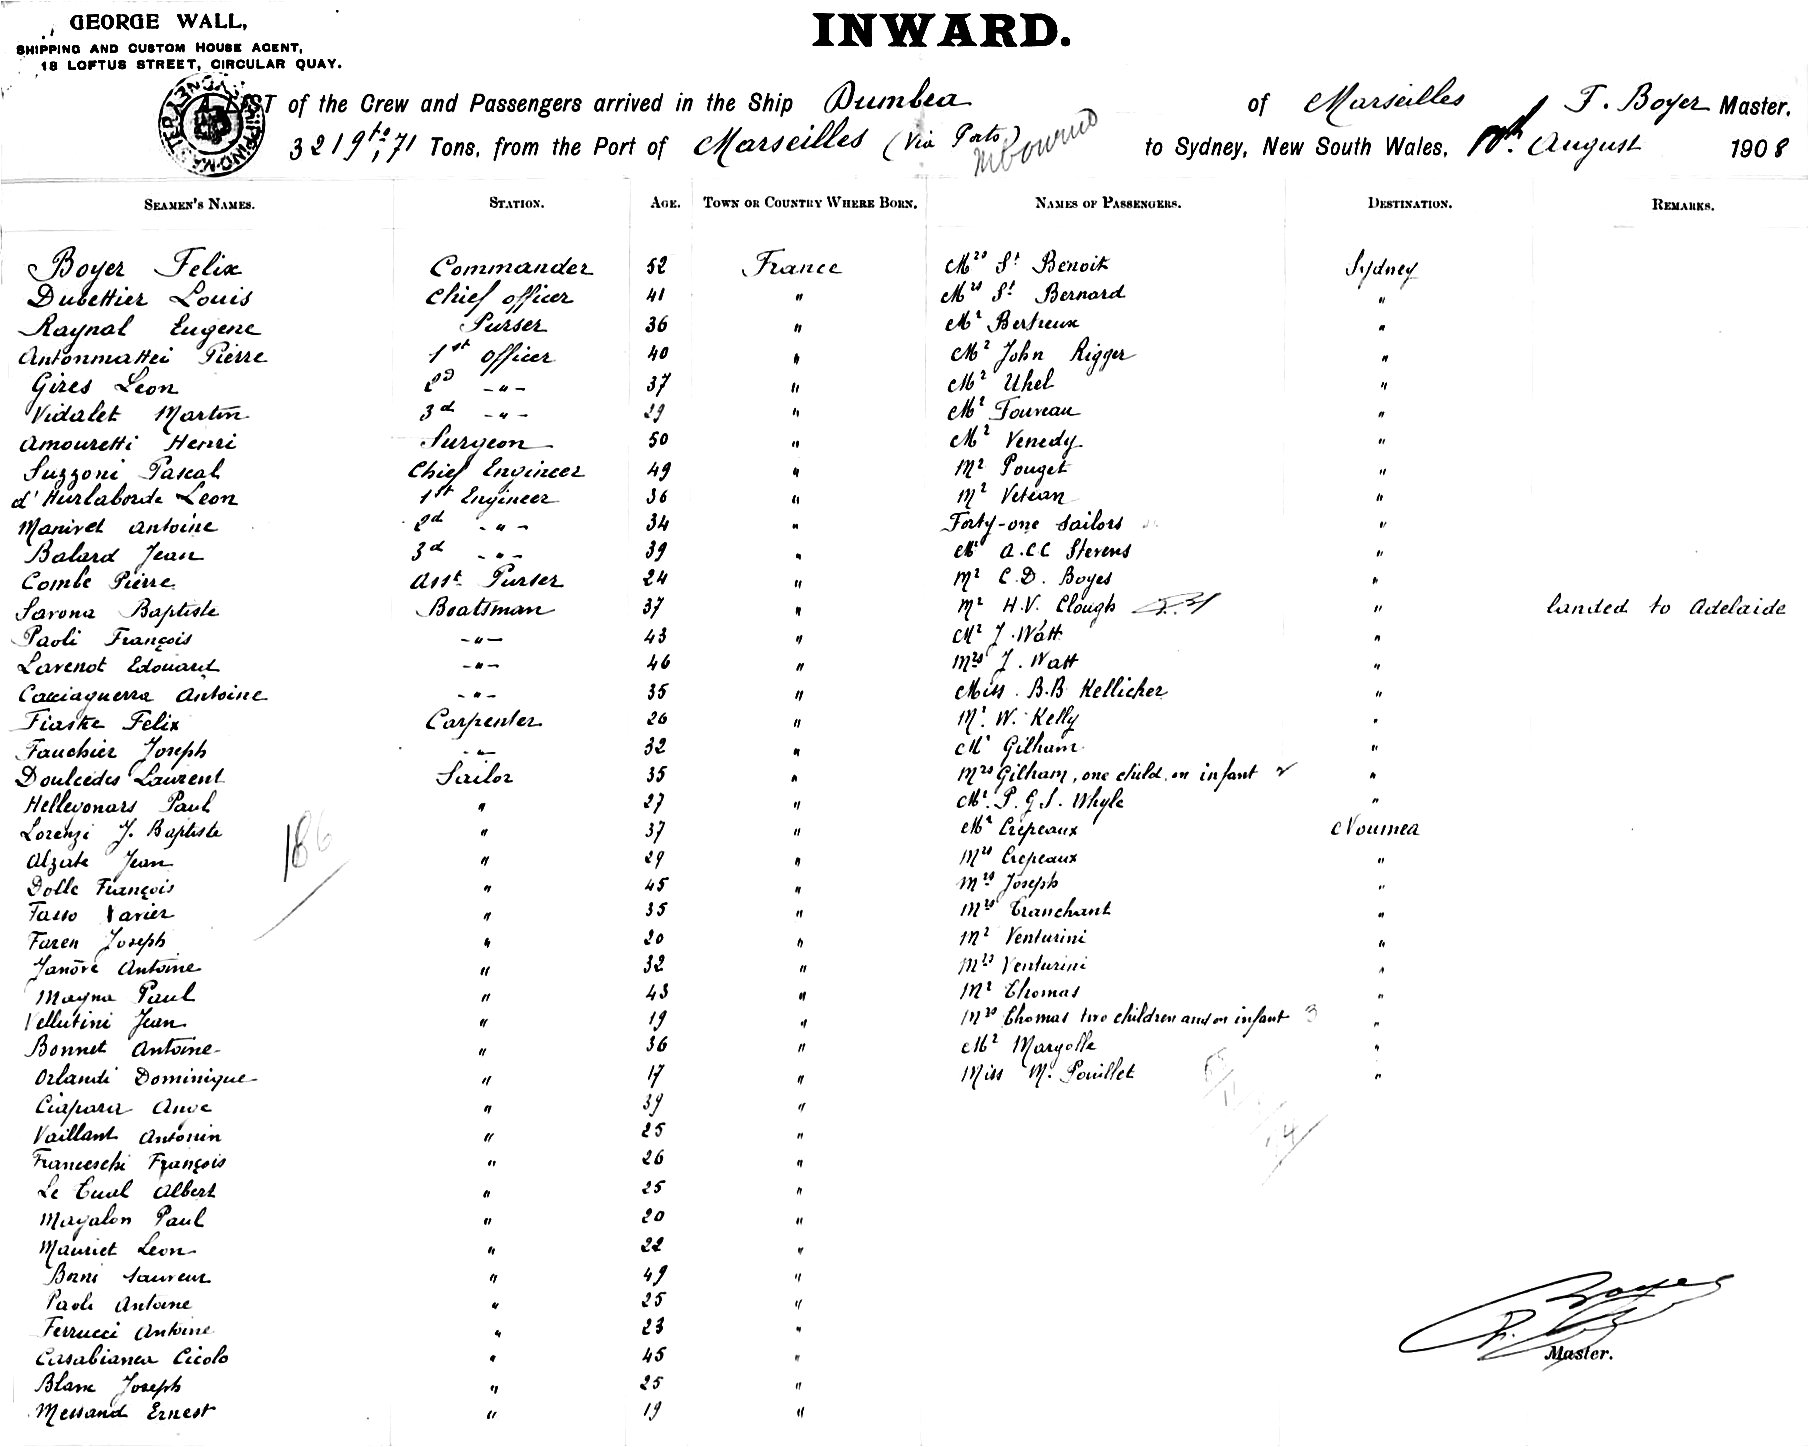 GEORGE WALL,
SHIPPING AND CUSTOM HOUSE AGENT,
18 LOFTUS STREET, CIRCULAR QUAY.
INWARD.
LIST of the Crew and Passengers arrived in the Ship Dumbea of Marseilles F. Boyer Master.
3219 71 Tons, from the Port of Marseilles (Via Ports) to Sydney, New South Wales, August 1908
SEAMEN'S NAMES. STATION. AGE. TOWN OR COUNTRY WHERE BORN. NAMES OF PASSENGERS. DESTINATION. REMARKS.
Boyer Felix Commander 52 France Mrs St Benoit Sydney
Dubettier Louis Chief officer 41 " Mrs St Bernard "
Raynal Eugene Purser 36 " Mr Bertreux "
Antonmattei Pierre 1st officer 40 " Mr John Rigger "
Gires Leon 2d -"- 37 " Mr Uhel "
Vidalet Martin 3d -"- 29 " Mr Touveau "
Amouretti Henri Surgeon 50 " Mr Venedy "
Suzzoni Pascal Chief Engineer 49 " Mr Pouget "
d'Hurlaborde Leon 1st Engineer 36 " Mr Vetean "
Manivet Antoine 2d -"- 34 " Forty-one sailors "
Balard Jean 3d -"- 39 " Mr A.C.C Stevens "
Combe Pierre Asst. Purser 24 " Mr C.D. Boyes "
Savona Baptiste Boatsman 37 " Mr H.V. Clough " landed to Adelaide
Paoli François -"- 43 " Mr J. Watt "
Lavenot Edouard -"- 46 " Mrs J. Watt "
Cacciaguerra Antoine -"- 35 " Miss. B.B Kellicher "
Fiaske Felix Carpenter 26 " Mr. W. Kelly "
Fauchier Joseph -"- 32 " Mr Gilham "
Doulcedes Laurent Sailor 35 " Mrs Gilham, one child, on infant 2 "
Hellevonars Paul " 27 " Mr. P.G.S. Whyle "
Lorenzi J. Baptiste " 37 " Mr Crepeaux Noumea
Alzate Jean " 29 " Mrs Crepeaux "
Dolle François " 45 " Mrs Joseph "
Tasso Xavier " 35 " Mrs Tranchant "
Faren Joseph " 20 " Mr Venturini "
Janore Antoine " 32 " Mrs Venturini "
Mayna Paul " 43 " Mr Thomas "
Vellutini Jean " 19 " Mrs Thomas two children and on infant 3 "
Bonnet Antoine " 36 " Mr Margolle "
Orlandi Dominique " 17 " Miss M. Pouillet "
Ciapara Ange " 39 "
Vaillant Antonin " 25 "
Franceschi François " 26 "
Le Tual Albert " 25 "
Mayalon Paul " 20 "
Mauriet Leon " 22 "
Bonni Sauveur " 49 "
Paoli Antoine " 25 "
Ferrucci Antoine " 23 "
Casabianca Cicolo " 45 "
Blanc Joseph " 25 "
Messand Ernest " 19 "
186
F. Boyer
Master.